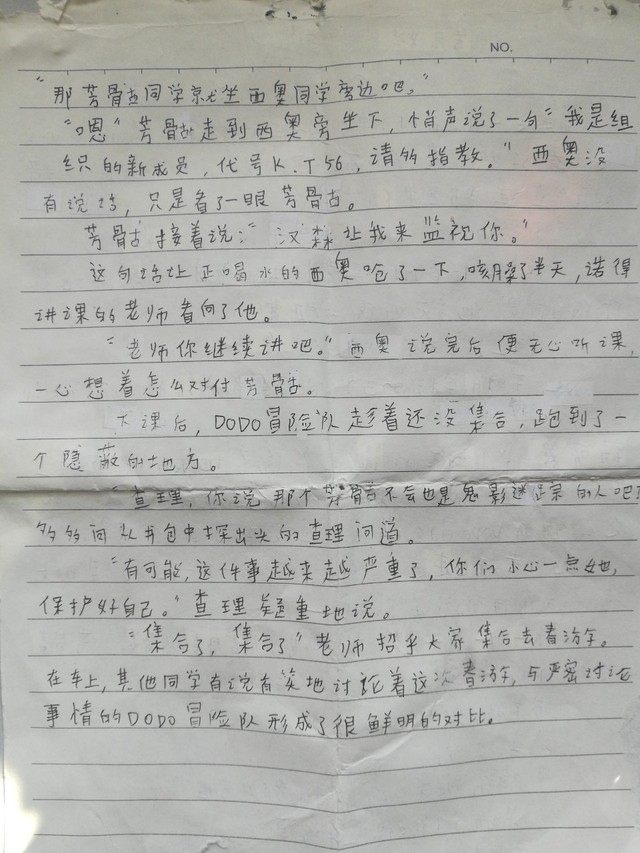 NO.
"那芳骨古同学就坐西奥同学旁边吧。"
"嗯"芳骨古走到西奥旁坐下,悄声说了一句"我是组
织的新成员,代号K.T56,请多指教。"西奥没
有说话,只是看了一眼芳骨古。
芳骨古接着说:"汉森让我来监视你。"
这句话让正喝水的西奥呛了一下,咳嗽了半天,诺得
讲课的老师看向了他。
"老师你继续讲吧。"西奥说完后便无心听课,
一心想着怎么对付芳骨古。
大课后,DODO冒险队趁着还没集合,跑到了一
个隐蔽的地方。
"查理,你说那个芳骨古不会也是鬼影迷踪的人吧?
多多问从书包中探出头的查理问道。
"有可能,这件事越来越严重了,你们小心一点她,
保护好自己。"查理凝重地说。
"集合了,集合了"老师招乎大家集合去春游。
在车上,其他同学有说有笑地讨论着这次春游,与严密讨论
事情的DODO冒险队形成了很鲜明的对比。